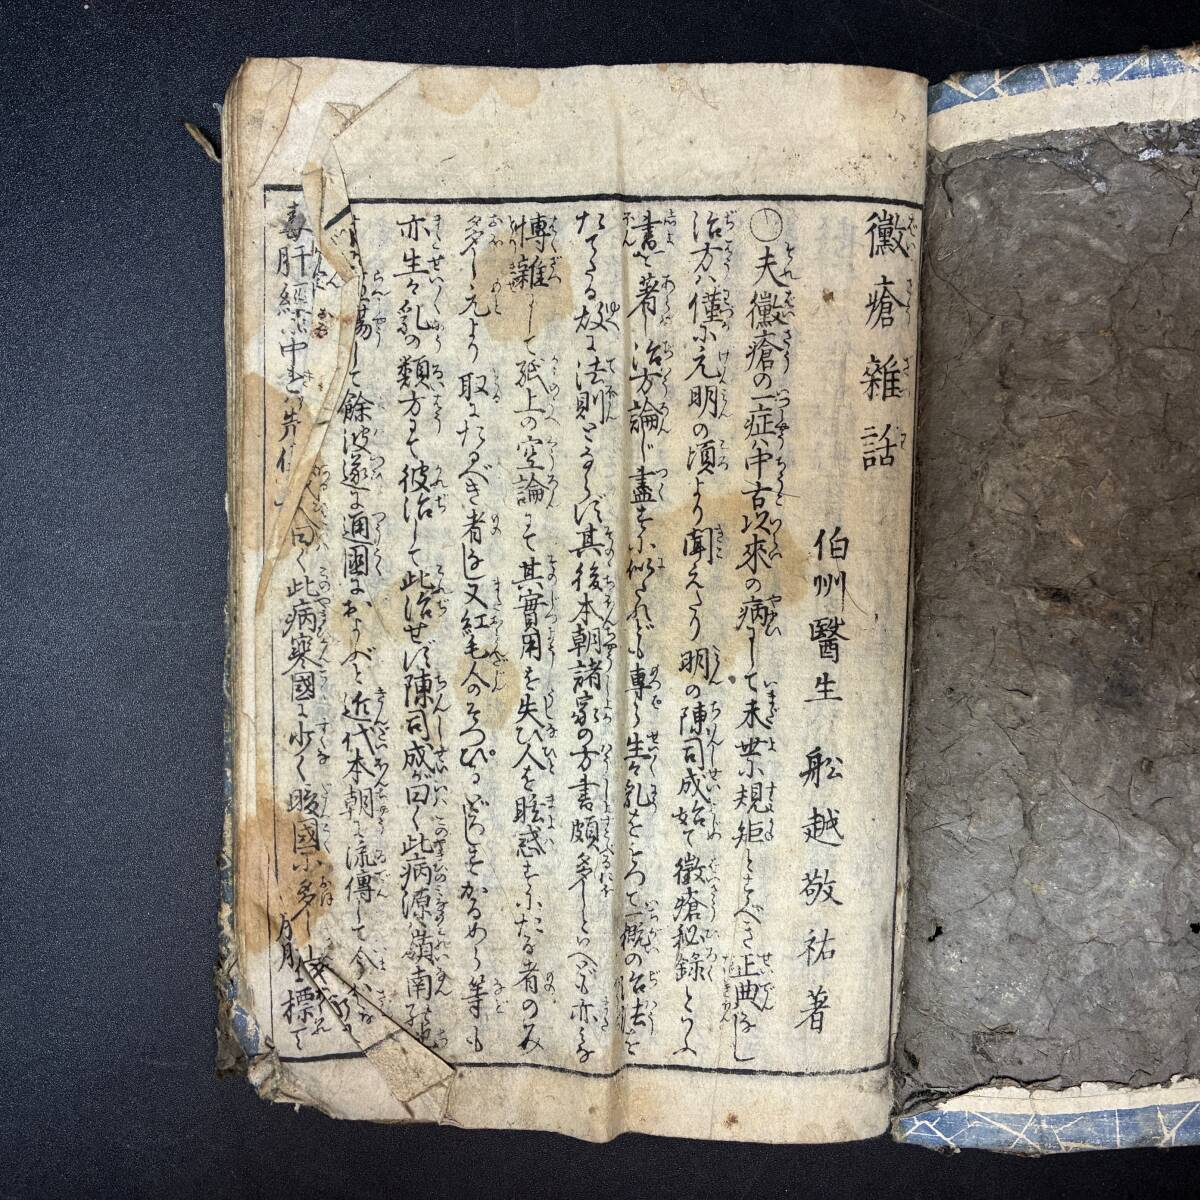 黴瘡雜話
伯州醫生 舩越敬祐著
○夫黴瘡の一症ハ中古以來の病にして未世に規矩とすべき正典なし
治方ハ僅に元明の頃より聞えたり明の陳司成始て黴瘡秘録といふ
書を著し治方論じ盡すに似たれども専ら生々乳をもつて一概の治法を
たてたる故に法則とならず其後本朝諸家の方書頗多しといへども亦
博雜にして紙上の空論にて其實用を失ひ人を眩惑すにたる者のみ
多し元より取にたるべき者なし又紅毛人のそつぴるどしすかるめら等も
亦生々乳の類方にて彼治して此治せず陳司成が曰く此病源嶺南
して餘波遂に通國におよべと近代本朝に流傳して今
毒肝經 中 人曰く此病寒國に少く暖國に多し 標て